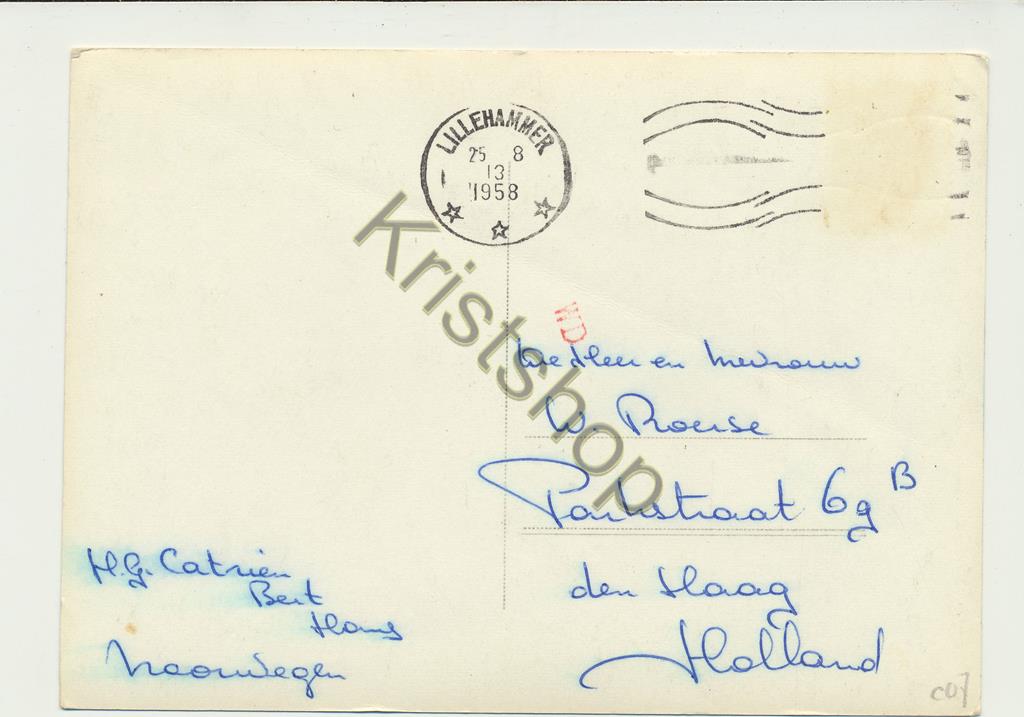 LILLEHAMMER
25 8
13
1958
Kristshop
WD
en Mevrouw
W. Roerse
Parkstraat 69 B
den Haag
Holland
H.G. Catrien
Bert
Hans
Noorwegen